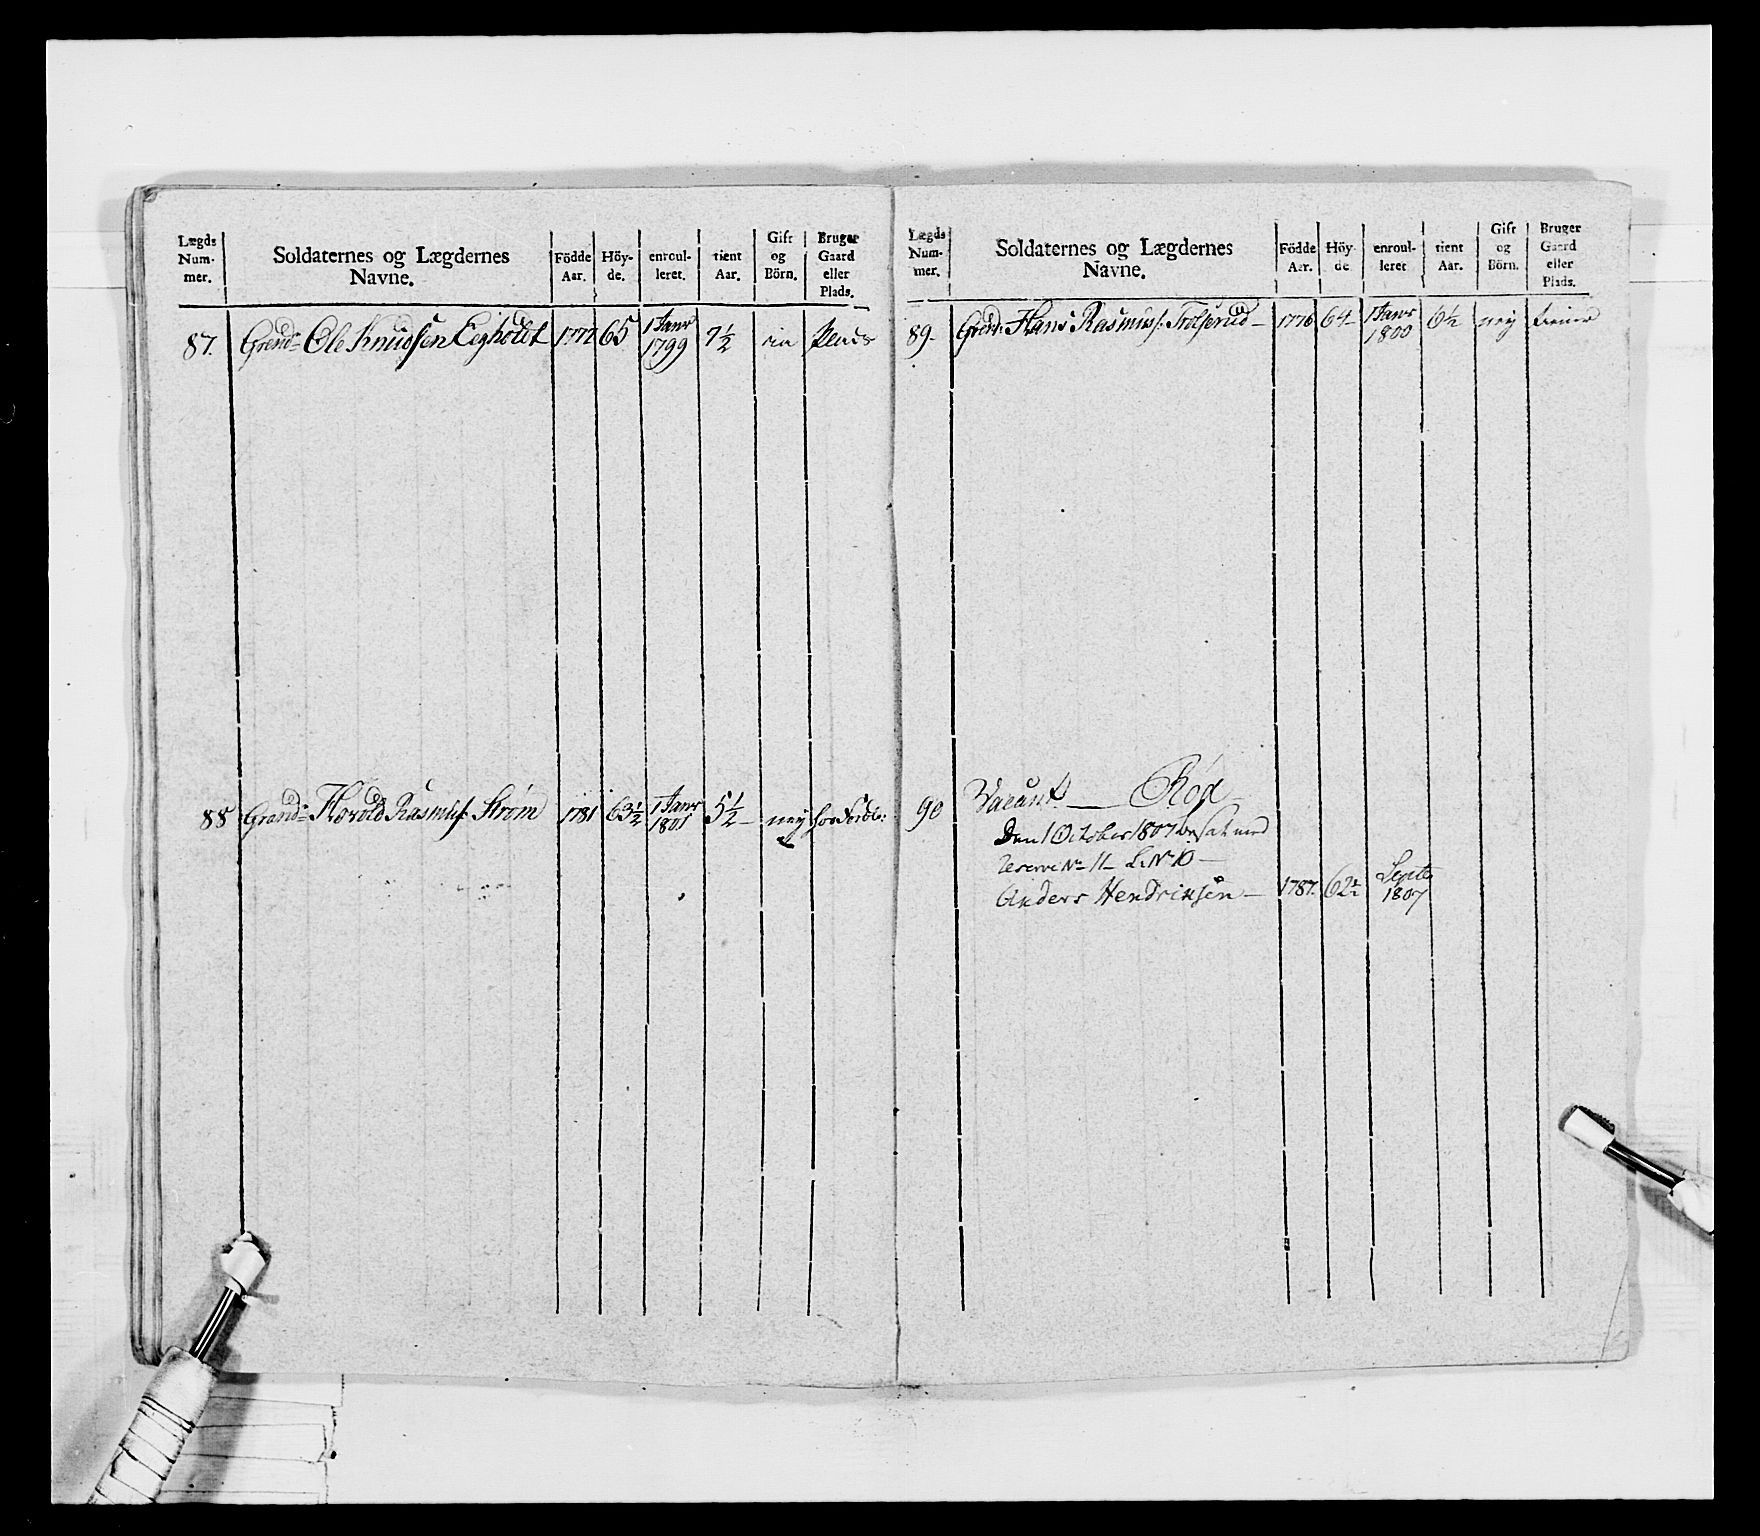 Lægds Num-mer.
Soldaternes og Lægdernes Navne.
Födde Aar.
Höy-de.
enroul-leret.
tient Aar.
Gift og Börn.
Bruger Gaard eller Plads.
87. Grend: Ole Knudsen Eegholdt 1777 65 1 Janr 1799 7½ Plads
88 Grand: Rasmus: Strøm 1781 63½ 1 Janr 1801 5½ ney
Lægds Num-mer.
Soldaternes og Lægdernes Navne.
Födde Aar.
Höy-de
enroul-leret
tient Aar.
Gift og Börn.
Bruger Gaard eller Plads.
89. Grend: Hans Rasmuss: 1776 64 1 Janr 1800 6½ ney
90 Vacant Röd
Den 1 October 1807 besat med
reserve No 11 L. No 10
Anders Hendriksen 1787. 62½ Septr 1807